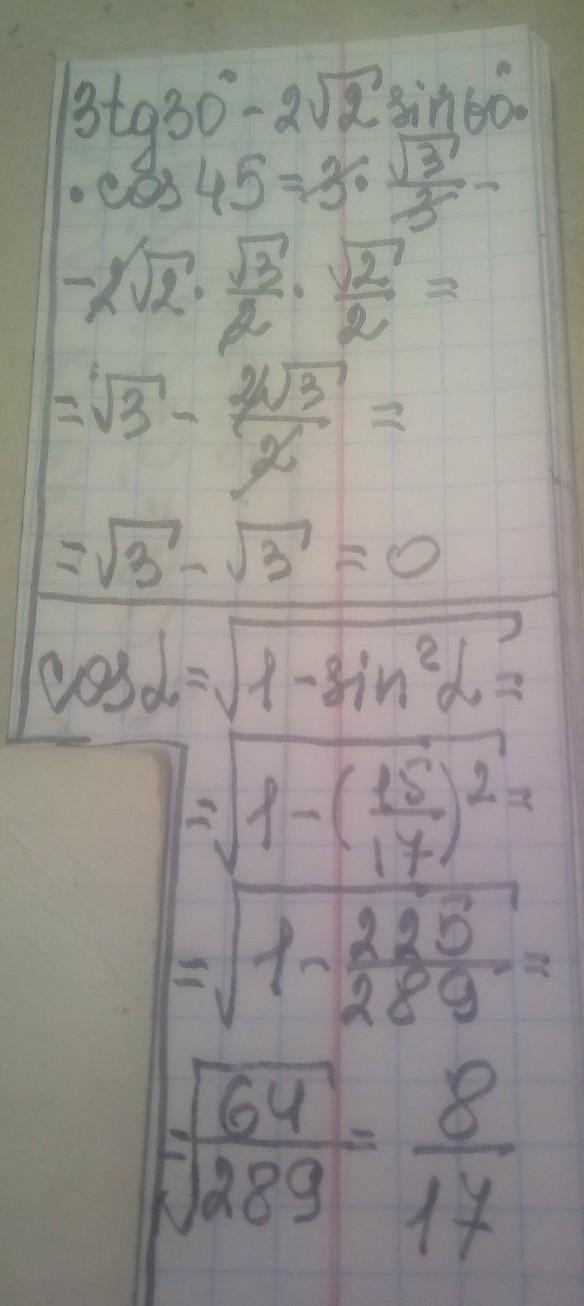 3tg30° - 2√2 sin60°·
· cos 45 = 3 · √3/3 -
- 2√2 · √3/2 · √2/2 =
= √3 - 2√3/2 =
= √3 - √3 = 0
cosα = √(1 - sin²α) =
= √(1 - (15/17)²) =
= √(1 - 225/289) =
= √(64/289) = 8/17